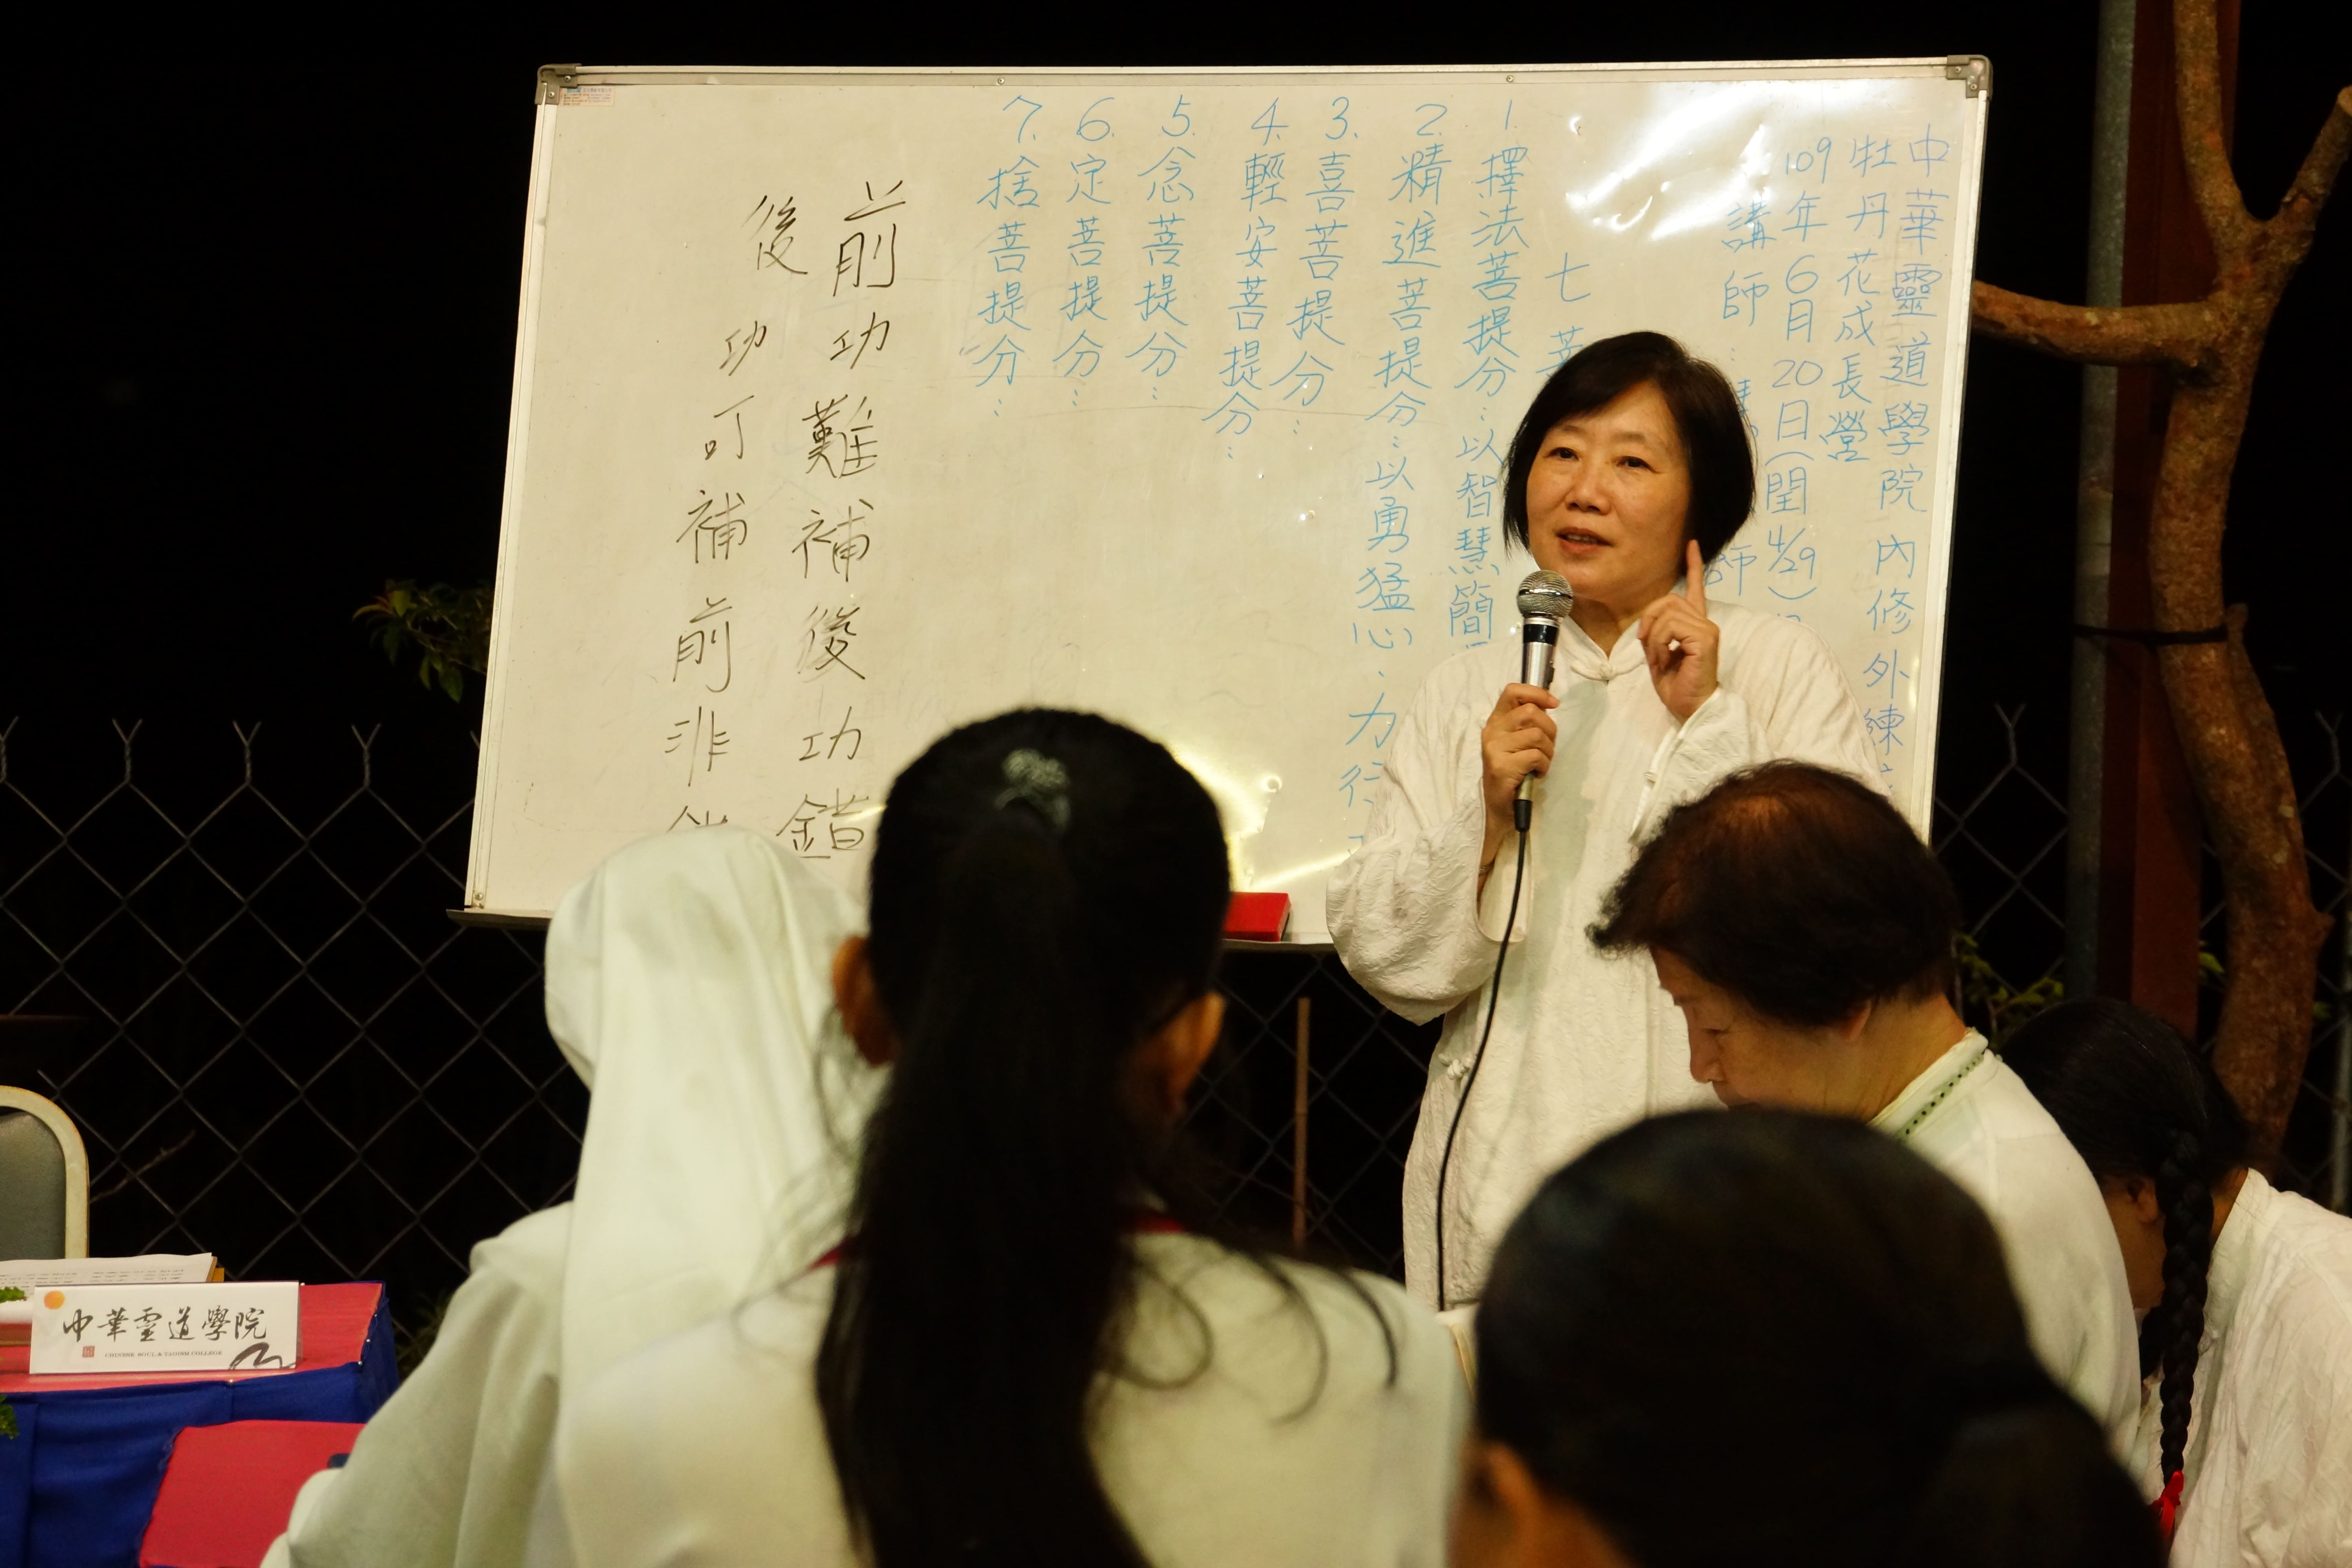 中華靈道學院內修外練
牡丹花成長營
109年6月20日(閏4/29)
講師: 師
七菩
1.擇法菩提分:以智慧簡
2.精進菩提分:以勇猛心、力行
3.喜菩提分:
4.輕安菩提分:
5.念菩提分:
6.定菩提分:
7.捨菩提分:
前功難補後功錯
後功可補前非
中華靈道學院
CHINESE SOUL & TAOISM COLLEGE